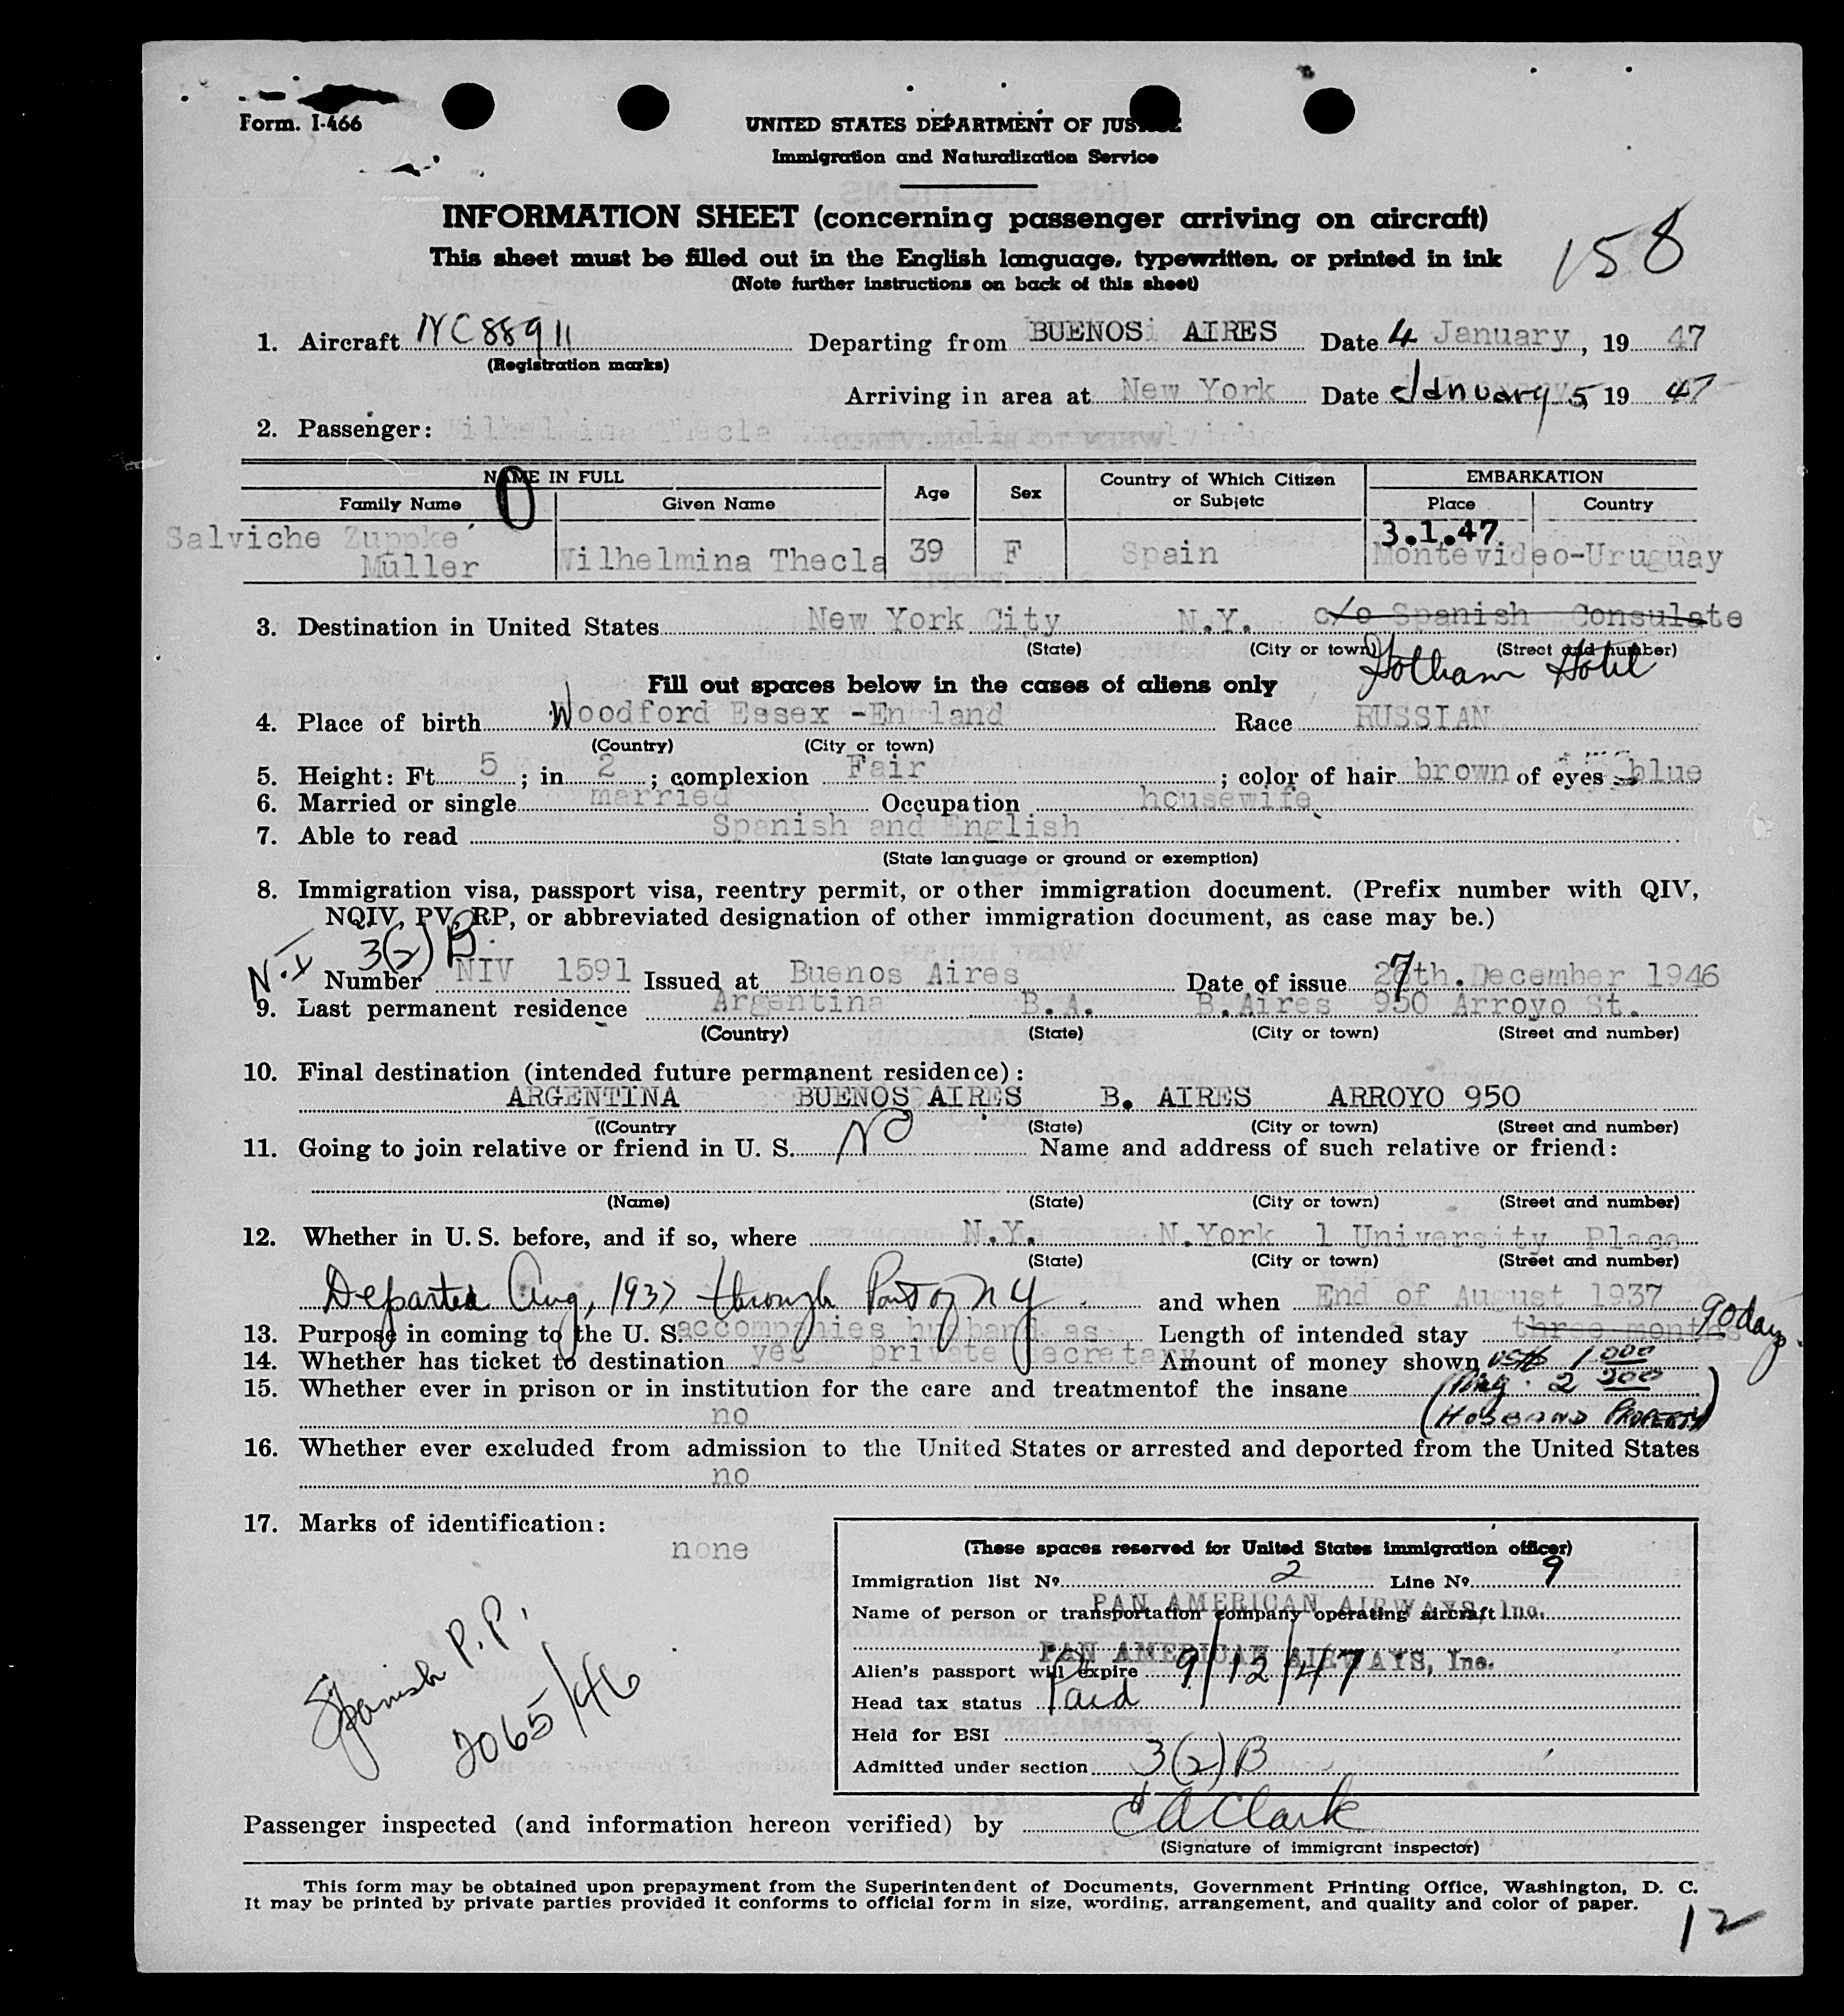 Form. I-466
UNITED STATES DEPARTMENT OF JUSTICE
Immigration and Naturalization Service
INFORMATION SHEET (concerning passenger arriving on aircraft)
This sheet must be filled out in the English language, typewritten, or printed in ink
158
(Note further instructions on back of this sheet)
1. Aircraft NC88911 Departing from BUENOS AIRES Date 4 January, 19 47
(Registration marks)
Arriving in area at New York Date January 5, 19 47
2. Passenger: Wilhelmina Thecla
NAME IN FULL Age Sex Country of Which Citizen or Subjetc EMBARKATION
Family Name Given Name Place Country
O
3.1.47.
Salviche Zuppke
Müller Wilhelmina Thecla 39 F Spain Montevideo-Uruguay
3. Destination in United States New York City N.Y. c/o Spanish Consulate
(State) (City or town) (Street and number)
Gotham Hotel
Fill out spaces below in the cases of aliens only
4. Place of birth Woodford Essex -England Race RUSSIAN
(Country) (City or town)
5. Height: Ft 5 ; in 2 ; complexion Fair ; color of hair brown of eyes blue
6. Married or single married Occupation housewife
7. Able to read Spanish and English
(State language or ground or exemption)
8. Immigration visa, passport visa, reentry permit, or other immigration document. (Prefix number with QIV,
NQIV, PV, RP, or abbreviated designation of other immigration document, as case may be.)
3(2) B.
Number NIV 1591 Issued at Buenos Aires Date of issue 27th. December 1946
9. Last permanent residence Argentina B.A. B.Aires 950 Arroyo St.
(Country) (State) (City or town) (Street and number)
10. Final destination (intended future permanent residence):
ARGENTINA BUENOS AIRES B. AIRES ARROYO 950
((Country (State) (City or town) (Street and number)
11. Going to join relative or friend in U. S. NO Name and address of such relative or friend:
(Name) (State) (City or town) (Street and number)
12. Whether in U. S. before, and if so, where N.Y. N.York 1 University Place
(State) (City or town) (Street and number)
Departed Aug, 1937 through Port of NY and when End of August 1937
13. Purpose in coming to the U. S. accompanies husband as Length of intended stay three months 90 days.
14. Whether has ticket to destination yes private secretary Amount of money shown US$ 1000
15. Whether ever in prison or in institution for the care and treatmentof the insane (Arg. 2 200
no HUSBAND PROPERTY)
16. Whether ever excluded from admission to the United States or arrested and deported from the United States
no
17. Marks of identification:
none
(These spaces reserved for United States immigration officer)
Immigration list Nº 2 Line Nº 9
PAN AMERICAN AIRWAYS, Inc.
Name of person or transportation company operating aircraft
PAN AMERICAN AIRWAYS, Inc.
Alien's passport will expire 9/12/47
Head tax status Paid
Held for BSI
Admitted under section 3(2) B
Spanish P.P.
2065/46
Passenger inspected (and information hereon verified) by C A Clark
(Signature of immigrant inspector)
This form may be obtained upon prepayment from the Superintendent of Documents, Government Printing Office, Washington, D. C.
It may be printed by private parties provided it conforms to official form in size, wording, arrangement, and quality and color of paper.
12